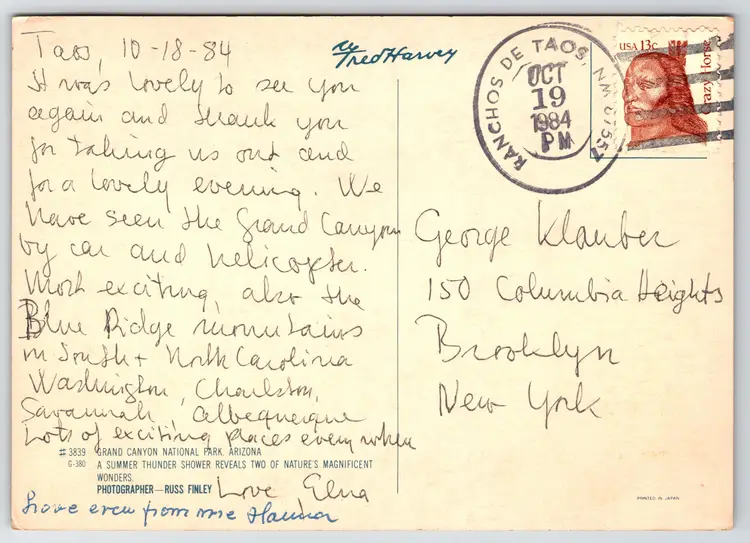 Taos, 10-18-84
It was lovely to see you
again and thank you
for taking us out and
for a lovely evening. We
have seen the Grand Canyon
by car and helicopter.
Most exciting, also the
Blue Ridge mountains
in South + North Carolina
Washington, Charlston,
Savannah, Albequerque
Lots of exciting places everywhere
Love Elna
love even from me Hanna
# 3839 GRAND CANYON NATIONAL PARK, ARIZONA
G-380 A SUMMER THUNDER SHOWER REVEALS TWO OF NATURE'S MAGNIFICENT
WONDERS.
PHOTOGRAPHER—RUSS FINLEY
Fred Harvey
RANCHOS DE TAOS, NM 87557
OCT
19
1984
PM
USA 13c
Crazy Horse
George Klauber
150 Columbia Heights
Brooklyn
New York
PRINTED IN JAPAN